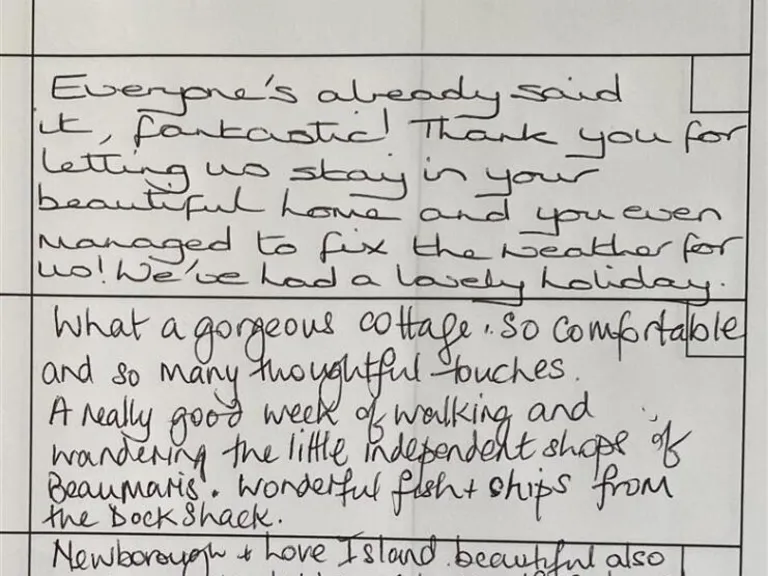 Everyone's already said
it, fantastic! Thank you for
letting us stay in your
beautiful home and you even
managed to fix the weather for
us! We've had a lovely holiday.
What a gorgeous cottage. So comfortable
and so many thoughtful touches.
A really good week of walking and
wandering the little independent shops of
Beaumaris. Wonderful fish + chips from
the Dock Shack.
Newborough + Love Island beautiful also